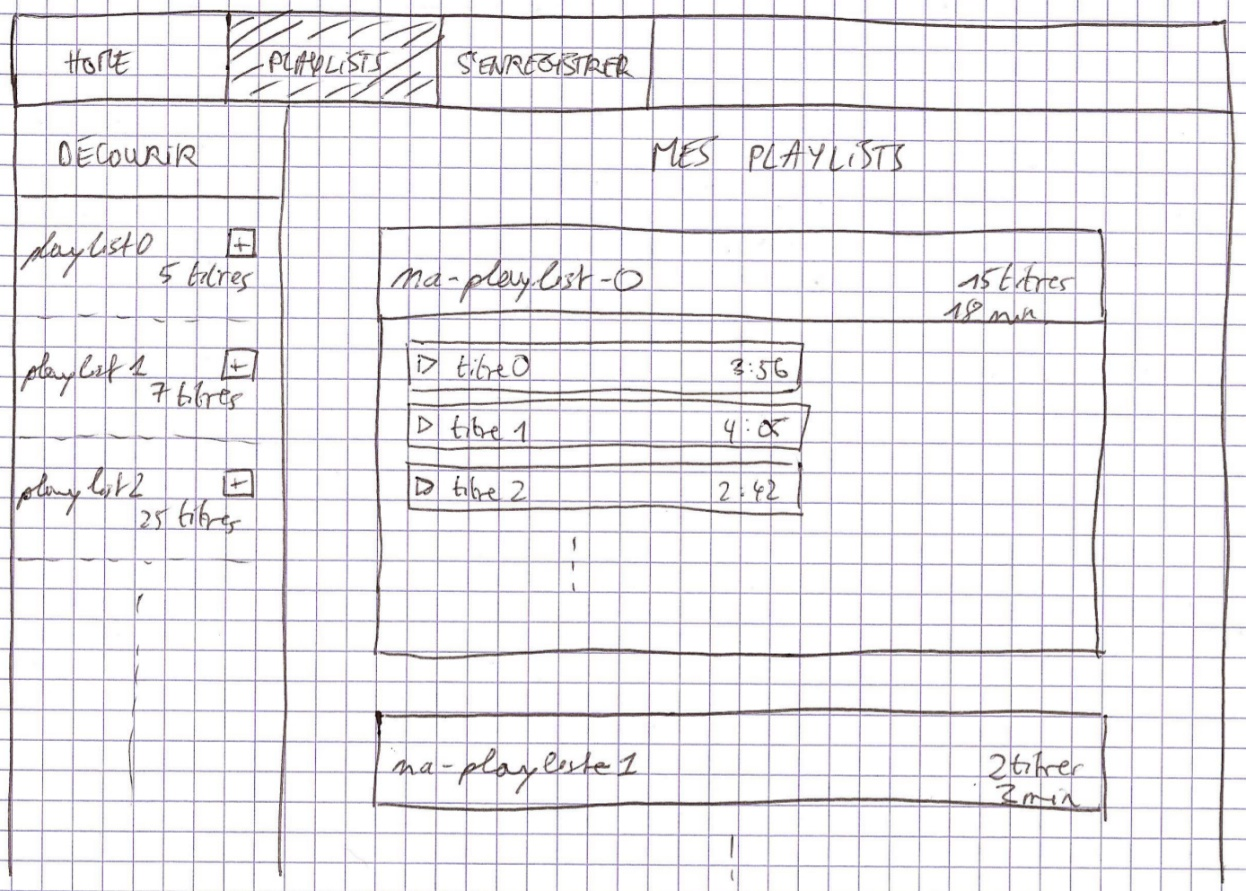 HOME PLAYLISTS S'ENREGISTRER
DÉCOUVRIR
MES PLAYLISTS
playlist 0 +
5 titres
playlist 1 +
7 titres
playlist 2 +
25 titres
ma-playlist-0 15 titres
18 min
titre 0 3:56
titre 1 4:05
titre 2 2:42
ma-playliste 1 2 titres
2 min